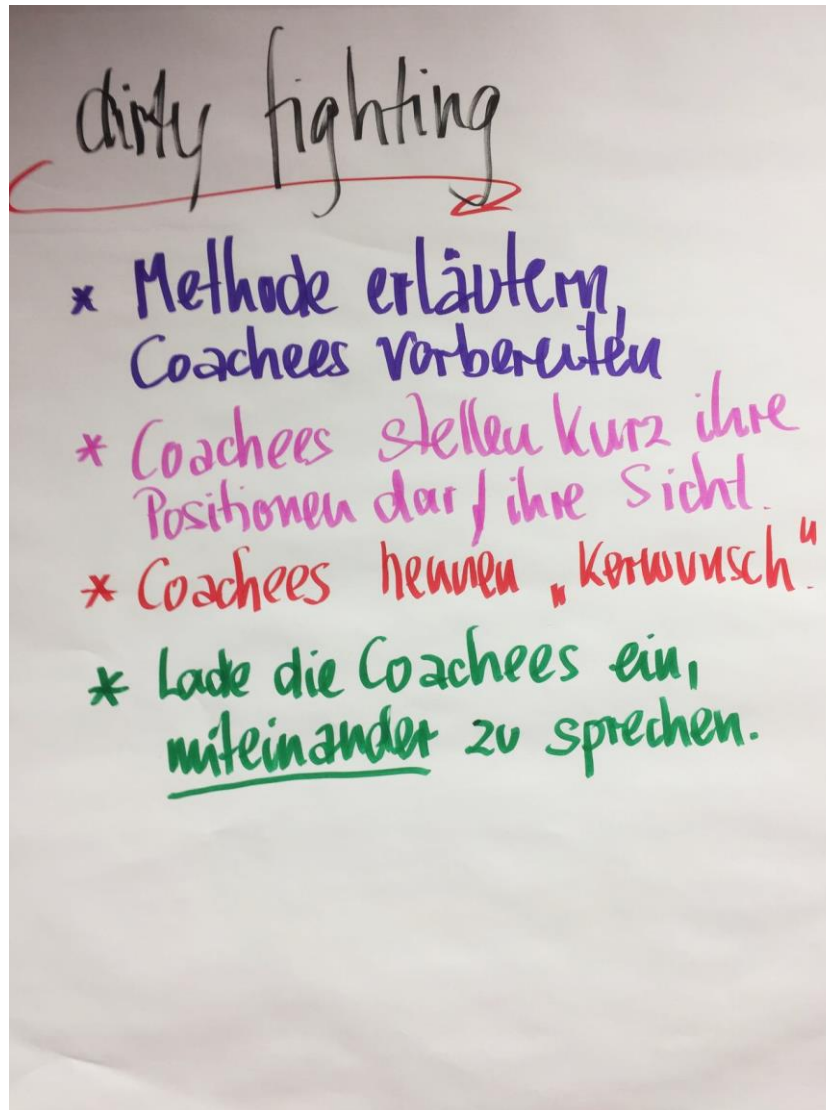 dirty fighting
* Methode erläutern,
Coachees vorbereiten
* Coachees stellen kurz ihre
Positionen dar / ihre Sicht.
* Coachees nennen „Kerwunsch“.
* Lade die Coachees ein,
miteinander zu sprechen.